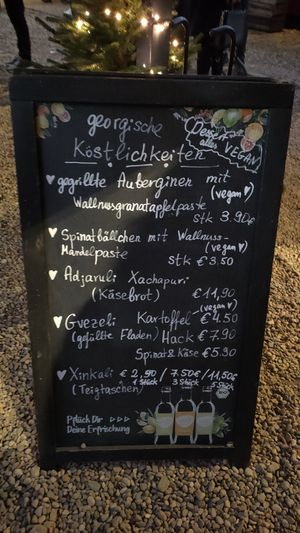 georgische
Köstlichkeiten
Dessert
alles VEGAN
gegrillte Auberginen mit
(vegan ♥)
Wallnussgranatapfelpaste
Stk 3.90€
Spinatbällchen mit Wallnuss-
Mandelpaste
(vegan ♥)
Stk €3.50
Adjaruli Xachapuri
(Käsebrot) €11,90
(vegan ♥)
Gvezeli Kartoffel €4.50
(gefüllte Fladen) Hack €7.90
Spinat & Käse €5.90
Xinkali €2,90 / 7.50€ / 11,50€
(Teigtaschen) 1 Stück 3 Stück 5 Stück
Pflück Dir >>>
Deine Erfrischung